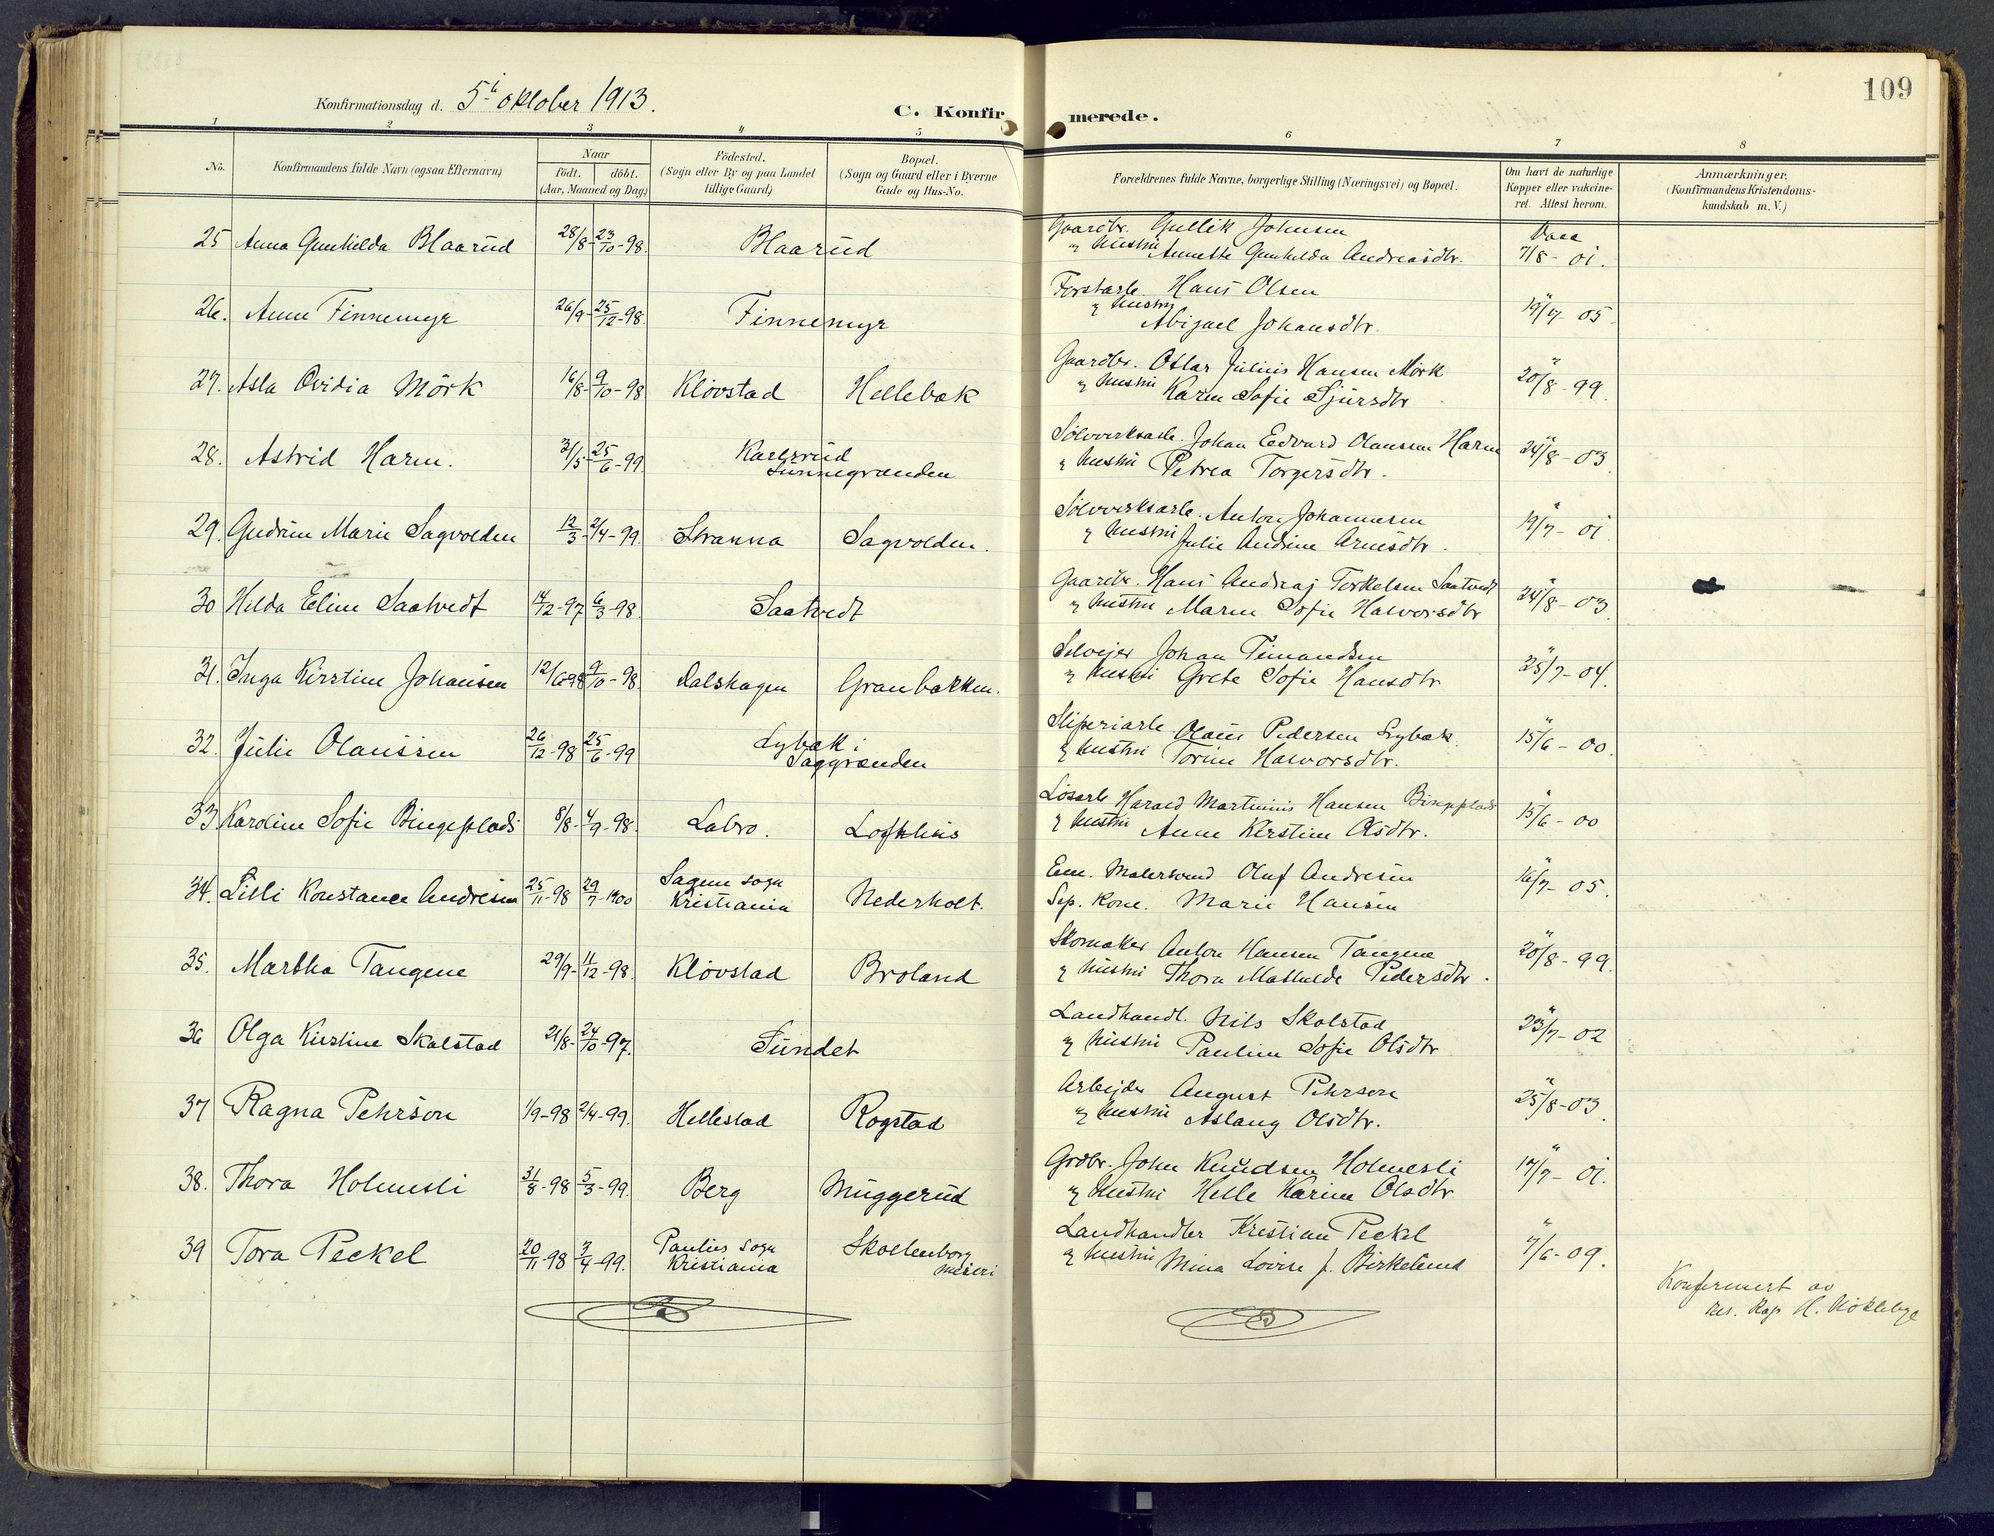 109
Konfirmationsdag d. 5i oktober 1913.
C. Konfirmerede.
1 2 3 4 5 6 7 8
No. Konfirmandens fulde Navn (ogsaa Efternavn) Naar født. døbt. (Aar, Maaned og Dag) Fødested. (Sogn eller By og paa Landet tillige Gaard) Bopæl. (Sogn og Gaard eller i Byerne Gade og Hus-No. Forældrenes fulde Navne, borgerlige Stilling (Næringsvei) og Bopæl. Om havt de naturlige Kopper eller vakcineret. Attest herom. Anmærkninger. (Konfirmandens Kristendomskundskab m. V.)
25 Anna Gunhilda Blaarud 28/8- 23/10-98. Blaarud Gaardbr. Gullik Johnsen
og hustru Annette Gunhilda Andreasdtr. Vacc 7/8-01.
26. Anne Finnemyr 26/9- 25/12-98. Finnemyr Forstarb. Hans Olsen
og hustru Abigael Johansdtr. " 19/7-05
27. Asla Ovidia Mörk 16/8- 9/10-98 Klövstad Hellebæk Gaardbr. Otlar Julius Hansen Mörk
og hustru Karen Sofie Sjursdtr " 20/8-99.
28. Astrid Harm. 31/5- 25/6-99 Karlsrud Sünnegrænden Sølvverksarb. Johan Edvard Olaussen Harm
og hustru Petrea Torgersdtr. " 24/8-03
29. Gudrun Marie Sagvolden 12/3- 2/4-99. Stranna Sagvolden. Sølvverksarb. Anton Johannesen
og hustru Julie Andrine Arnesdtr. " 19/7-01
30 Hilda Eline Saatvedt 14/12-97 6/3-98. Saatvedt Gaardbr. Hans Andreas Torkelsen Saatvedt
og hustru Maren Sofie Halvorsdtr " 24/8-03
31. Inga Kirstine Johansen 12/6-98 9/10-98. Dalshagen Granbakken. Selveier Johan
og hustru Grete Sofie Hansdtr " 25/7-04.
32. Julie Olaussen 26/12-98 25/6-99 Lybæk i Saggrænden Sliperiarb Olaus Pedersen Lybæk
og hustru Torine Halvorsdtr. " 15/6-00.
33 Karoline Sofie Bingeplads 8/8- 4/9-98. Labro. Lofthus Løsarb Harald Martinius Hansen Bingeplads
og hustru Anne Kirstine Olsdtr. " 15/6-00
34. Lilli Konstance Andresen 25/11-98 29/7-1900 Sagene sogn Kristiania Nederholt. Em. Malersvend Oluf Andresen
Sep. Kone. Marie Hansen " 16/7-05.
35. Martha Tangene 29/9- 11/12-98. Klövstad Broland Skomaker Anton Hansen Tangene
og hustru Thora Mathilde Pedersdtr. " 20/8-99.
36 Olga Kirstine Skalstad 21/8- 24/10-97. Sundet Landhandl. Nils Skalstad
og hustru Pauline Sofie Olsdtr " 23/7-02
37 Ragna Pehrson 1/9-98 2/4-99. Hellestad Rogstad Arbejder August Pehrson
og hustru Aslaug Olsdtr. " 25/8-03.
38. Thora Holmesli 31/8-98 5/3-99. Berg Muggerud Grdbr. John Knudsen Holmesli
og hustru Helle Karine Olsdtr " 17/7-01.
39 Tora Peckel 20/11-98 3/4-99. Paulus sogn Kristiania Skollenborg meieri Landhandler Kristian Peckel
og hustru Mina Lovise f. Birkelund " 7/6-09.
Konfirmert av
res. kap. H. Nøklebye